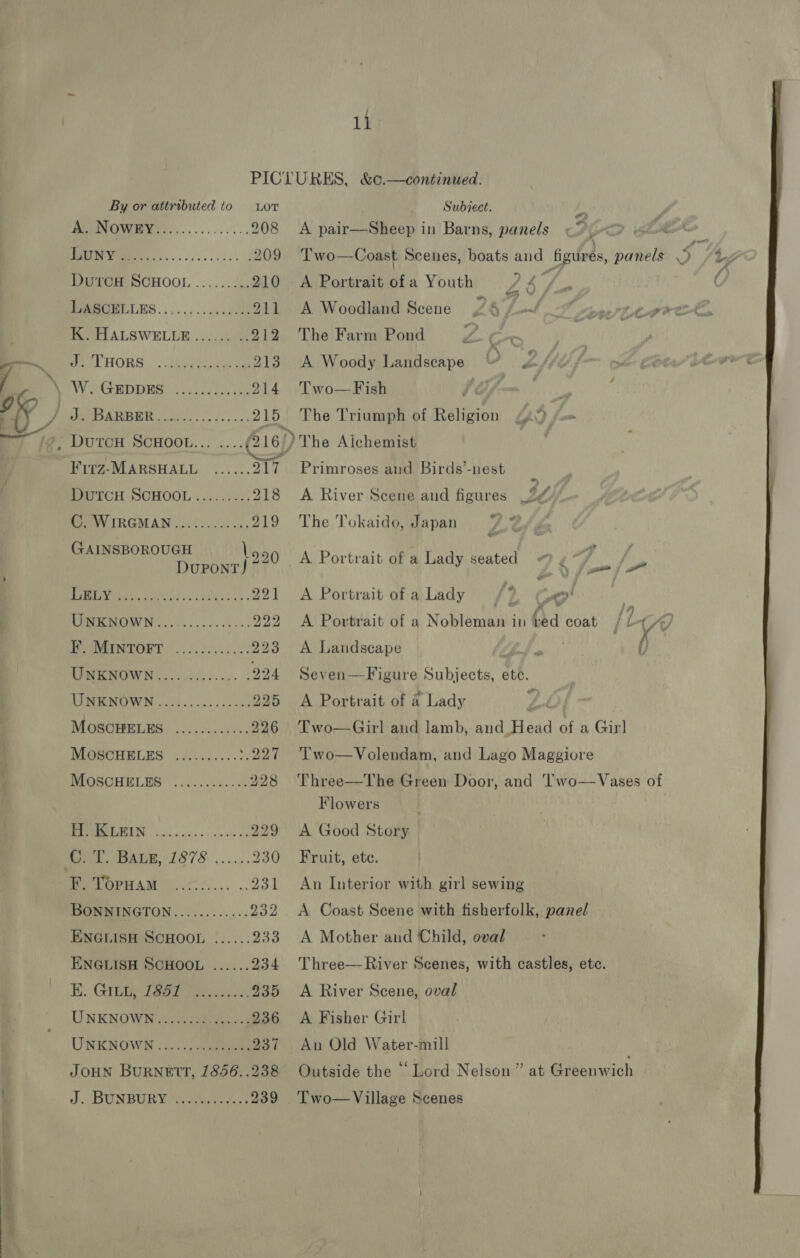 11
PICTURES, &c.—continued.
By or attributed to LOT Subject.
A. NOWEY.............. 208 A pair—Sheep in Barns, panels
LUNY .................... 209 Two—Coast Scenes, boats and figures, panels
DUTCH SCHOOL ......... 210 A Portrait of a Youth
LASCELLES............... 211 A Woodland Scene
K. HALSWELLE ...... .. 212 The Farm Pond
J. THORS ................ 213 A Woody Landscape
W. GEDDES ............ 214 Two—Fish
J. BARBER ............... 215 The Triumph of Religion
DUTCH SCHOOL... .... 216 The Alchemist
FITZ-MARSHALL ...... 217 Primroses and Birds'-nest
DUTCH SCHOOL ......... 218 A River Scene and figures
C. WIRGMAN ............ 219 The Tokaido, Japan
GAINSBOROUGH DUPONT } 220 A Portrait of a Lady seated
LELY ..................... 221 A Portrait of a Lady
UNKNOWN ............... 222 A Portrait of a Nobleman in red coat
F. MINTOFT ............ 223 A Landscape
UNKNOWN ............... 224 Seven—Figure Subjects, etc.
UNKNOWN ............... 225 A Portrait of a Lady
MOSCHELES ............ 226 Two—Girl and lamb, and Head of a Girl
MOSCHELES ............ 227 Two—Volendam, and Lago Maggiore
MOSCHELES ............ 228 Three—The Green Door, and Two—Vases of
Flowers
H. KLEIN ............... 229 A Good Story
C. T. BALE, 1878 ...... 230 Fruit, etc.
F. TOPHAM ............ 231 An Interior with girl sewing
BONNINGTON ............ 232 A Coast Scene with fisherfolk, panel
ENGLISH SCHOOL ...... 233 A Mother and Child, oval
ENGLISH SCHOOL ...... 234 Three—River Scenes, with castles, etc.
E. GILL, 1851 ......... 235 A River Scene, oval
UNKNOWN ............... 236 A Fisher Girl
UNKNOWN ............... 237 An Old Water-mill
JOHN BURNETT, 1856.. 238 Outside the "Lord Nelson" at Greenwich
J. BUNBURY ............ 239 Two—Village Scenes